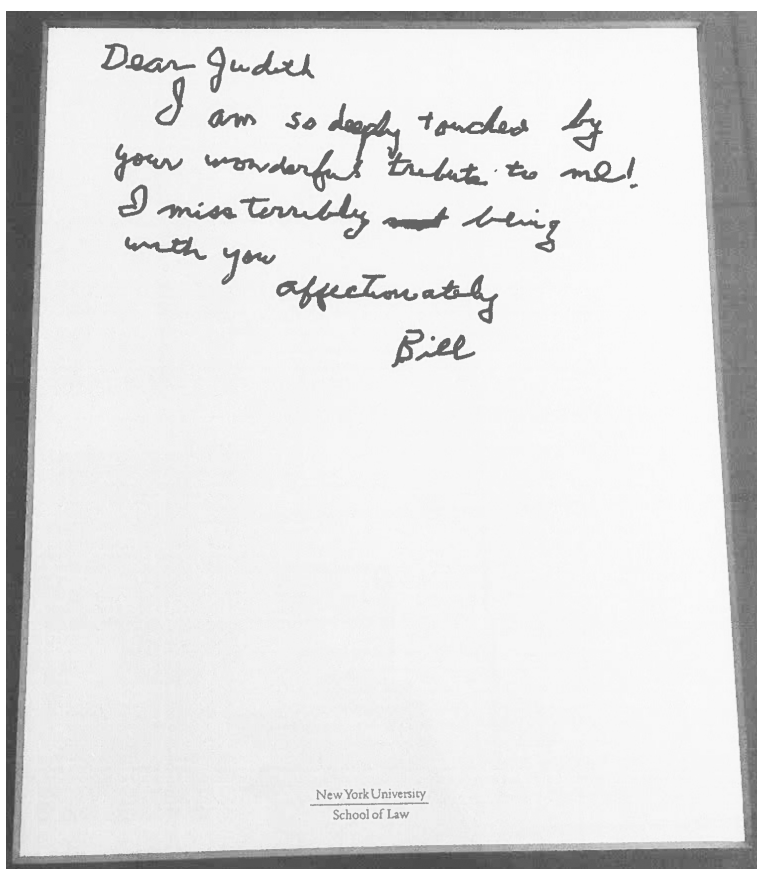 Dear Judith
I am so deeply touched by
your wonderful tribute to me!
I miss terribly not being
with you
affectionately
Bill
New York University
School of Law